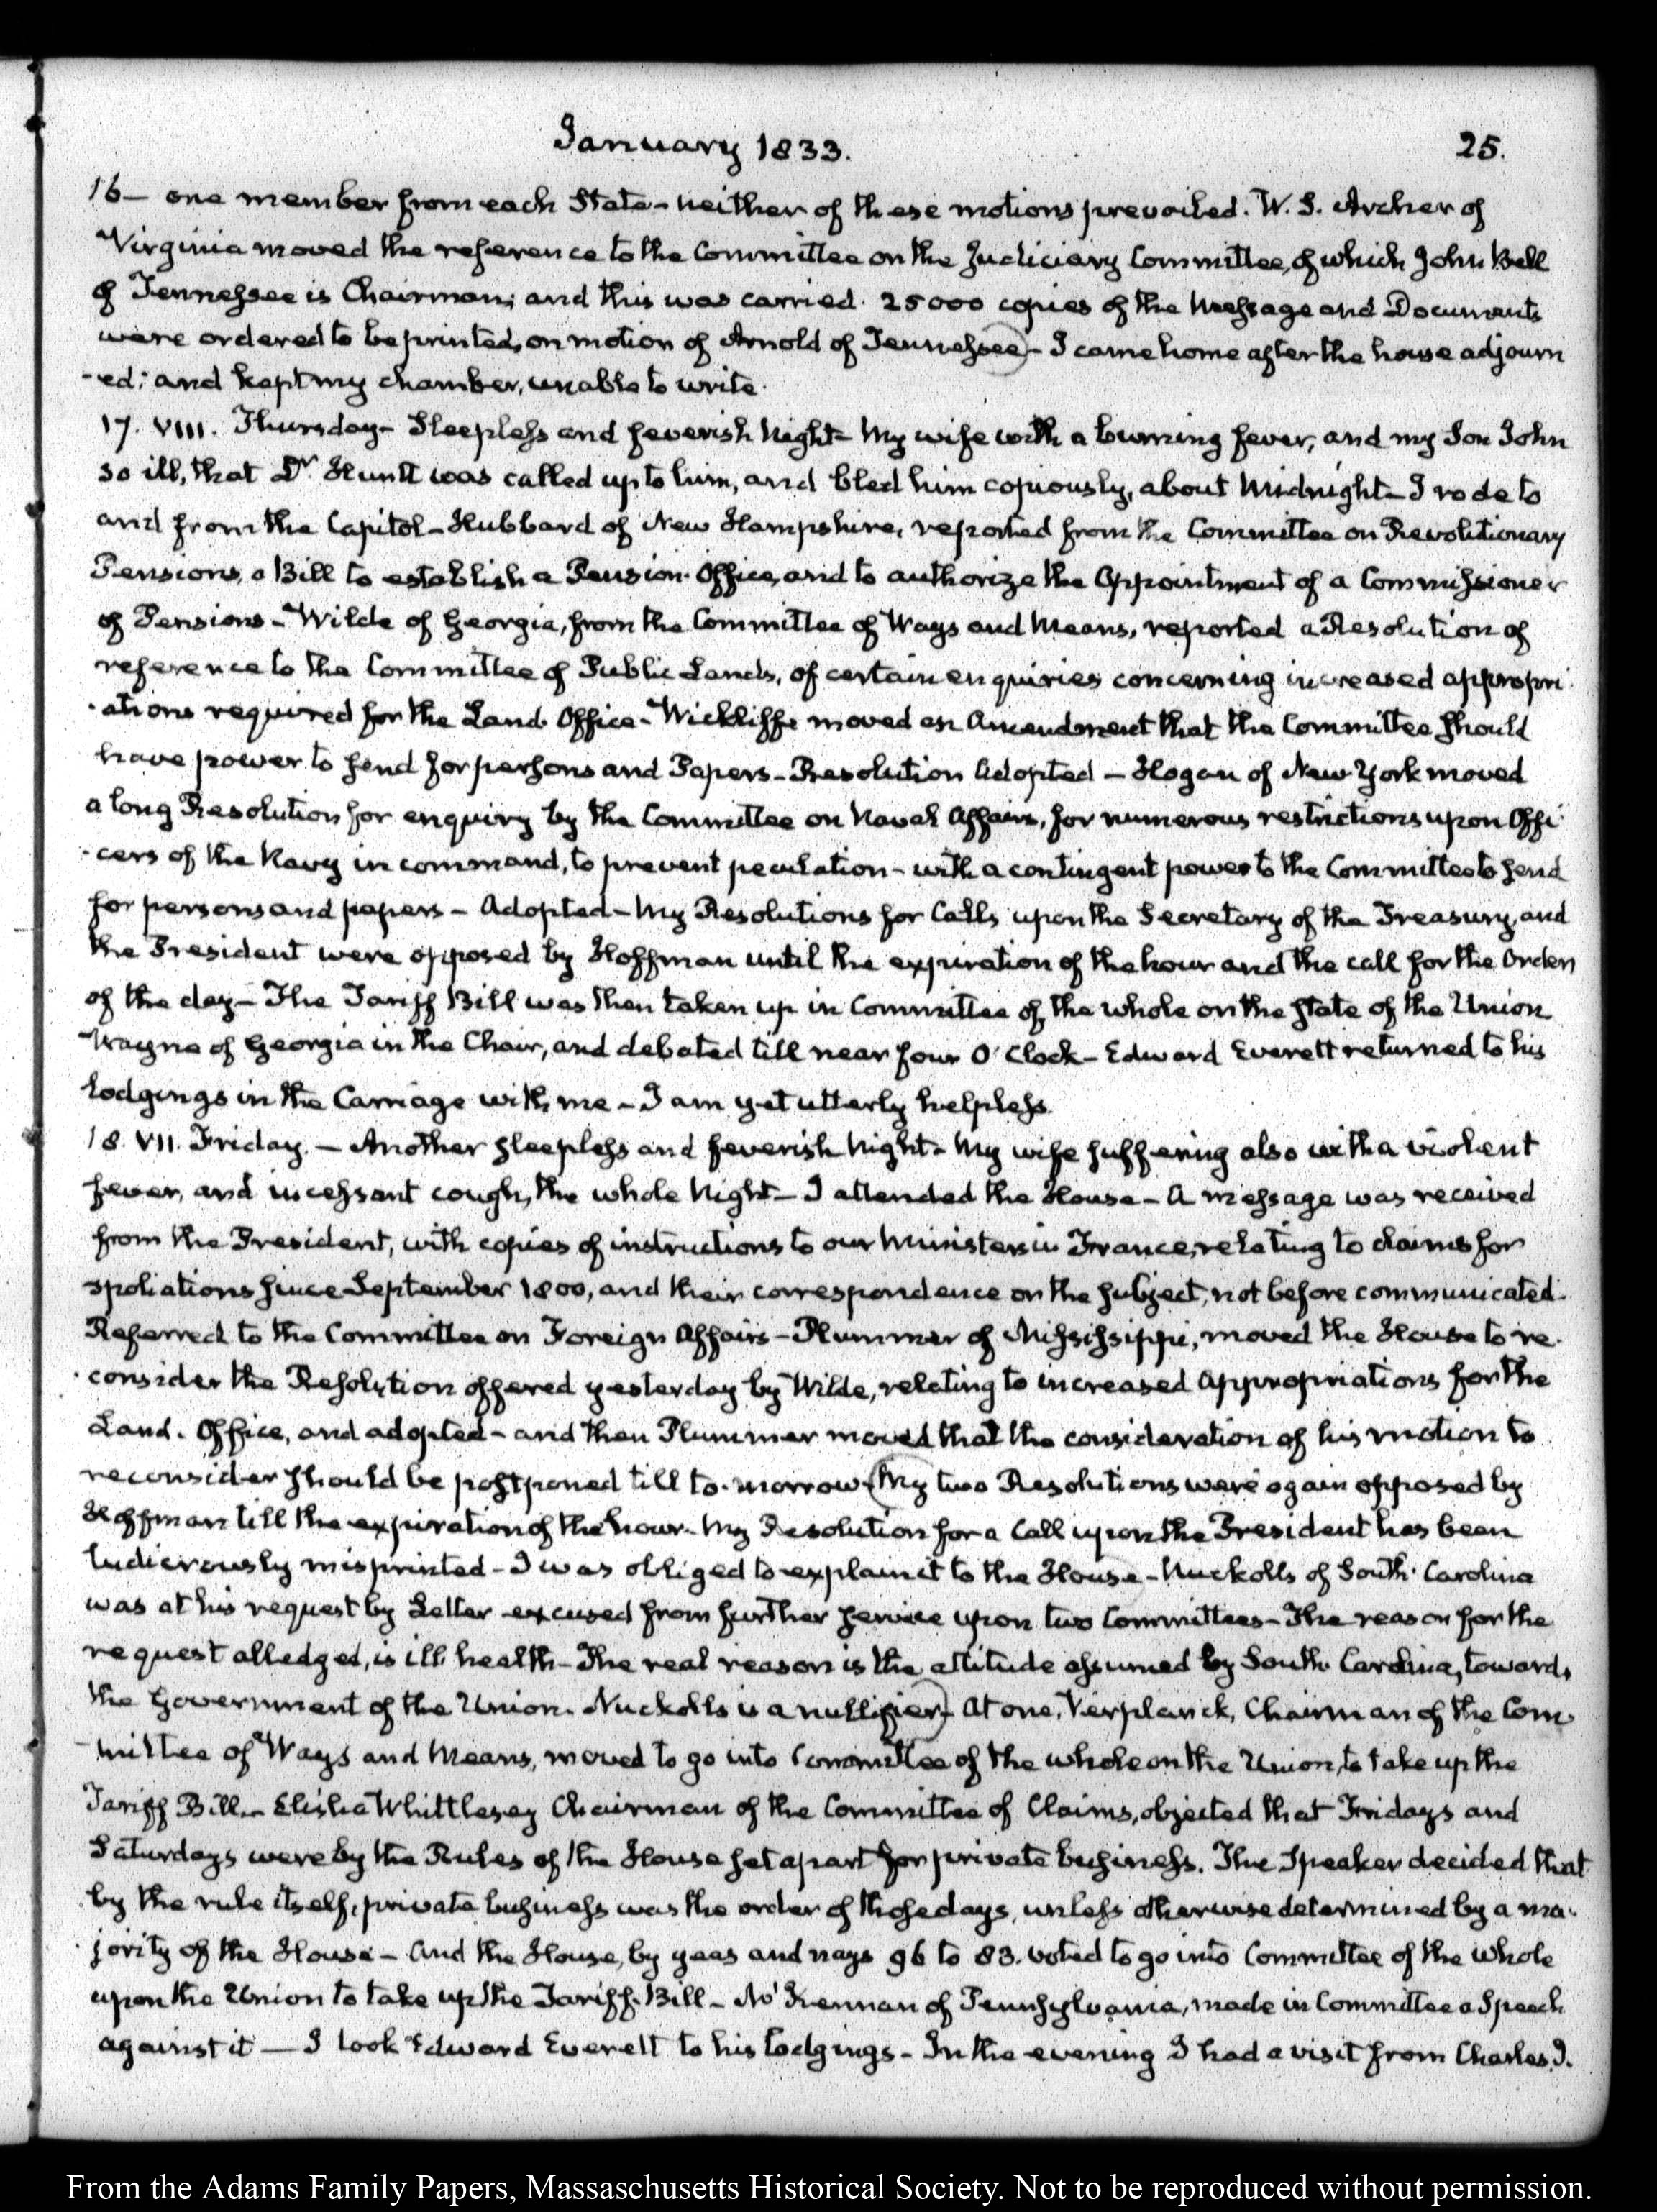 January 1833.
25.
16— one member from each State - neither of these motions prevailed. W. S. Archer of
Virginia moved the reference to the Committee on the Judiciary Committee, of which John Bell
of Tennessee is Chairman; and this was carried. 25000 copies of the Message and Documents
were ordered to be printed, on motion of Arnold of Tennessee - I came home after the house adjourn
-ed; and kept my chamber, unable to write.
17. VIII. Thursday - Sleepless and feverish Night - My wife with a burning fever, and my Son John
so ill, that Dr. Huntt was called up to him, and bled him copiously, about Midnight - I rode to
and from the Capitol - Hubbard of New Hampshire, reported from the Committee on Revolutionary
Pensions, a Bill to establish a Pension Office, and to authorize the Appointment of a Commissioner
of Pensions - Wilde of Georgia, from the Committee of Ways and Means, reported a Resolution of
reference to the Committee of Public Lands, of certain enquiries concerning increased appropri
-ations required for the Land Office - Wickliffe moved an Amendment that the Committee should
have power to send for persons and Papers - Resolution Adopted — Hogan of New York moved
a long Resolution for enquiry by the Committee on Naval Affairs, for numerous restrictions upon Offi
-cers of the Navy in command, to prevent peculation - with a contingent power to the Committee to send
for persons and papers - Adopted - My Resolutions for Calls upon the Secretary of the Treasury, and
the President were opposed by Hoffman until the expiration of the hour and the call for the Orders
of the day - The Tariff Bill was then taken up in Committee of the whole on the state of the Union
Wayne of Georgia in the Chair, and debated till near four O'Clock - Edward Everett returned to his
lodgings in the Carriage with me - I am yet utterly helpless.
18. VII. Friday. — Another sleepless and feverish Night - My wife suffering also with a violent
fever, and incessant cough, the whole Night - I attended the House - A message was received
from the President, with copies of instructions to our Ministers in France, relating to claims for
spoliations since September 1800, and their correspondence on the subject, not before communicated.
Referred to the Committee on Foreign Affairs - Plummer of Mississippi, moved the House to re-
-consider the Resolution offered yesterday by Wilde, relating to increased Appropriations for the
Land. Office, and adopted - and then Plummer moved that the consideration of his motion to
reconsider should be postponed till to-morrow - My two Resolutions were again opposed by
Hoffman till the expiration of the hour. My Resolution for a Call upon the President has been
ludicrously misprinted - I was obliged to explain it to the House - Nuckolls of South Carolina
was at his request by Letter excused from further service upon two Committees - The reason for the
request alledged, is ill health - The real reason is the attitude assumed by South Carolina, towards
the Government of the Union. Nuckolls is a nullifier - At one, Verplanck, Chairman of the Com
-mittee of Ways and Means, moved to go into Committee of the whole on the Union, to take up the
Tariff Bill. Elisha Whittlesey Chairman of the Committee of Claims, objected that Fridays and
Saturdays were by the Rules of the House set apart for private business. The Speaker decided that
by the rule itself, private business was the order of those days, unless otherwise determined by a ma-
-jority of the House - And the House, by yeas and nays 96 to 83. voted to go into Committee of the whole
upon the Union to take up the Tariff Bill - Mc'Kennan of Pennsylvania, made in Committee a Speech
against it — I took Edward Everett to his lodgings - In the evening I had a visit from Charles J.
From the Adams Family Papers, Massaschusetts Historical Society. Not to be reproduced without permission.